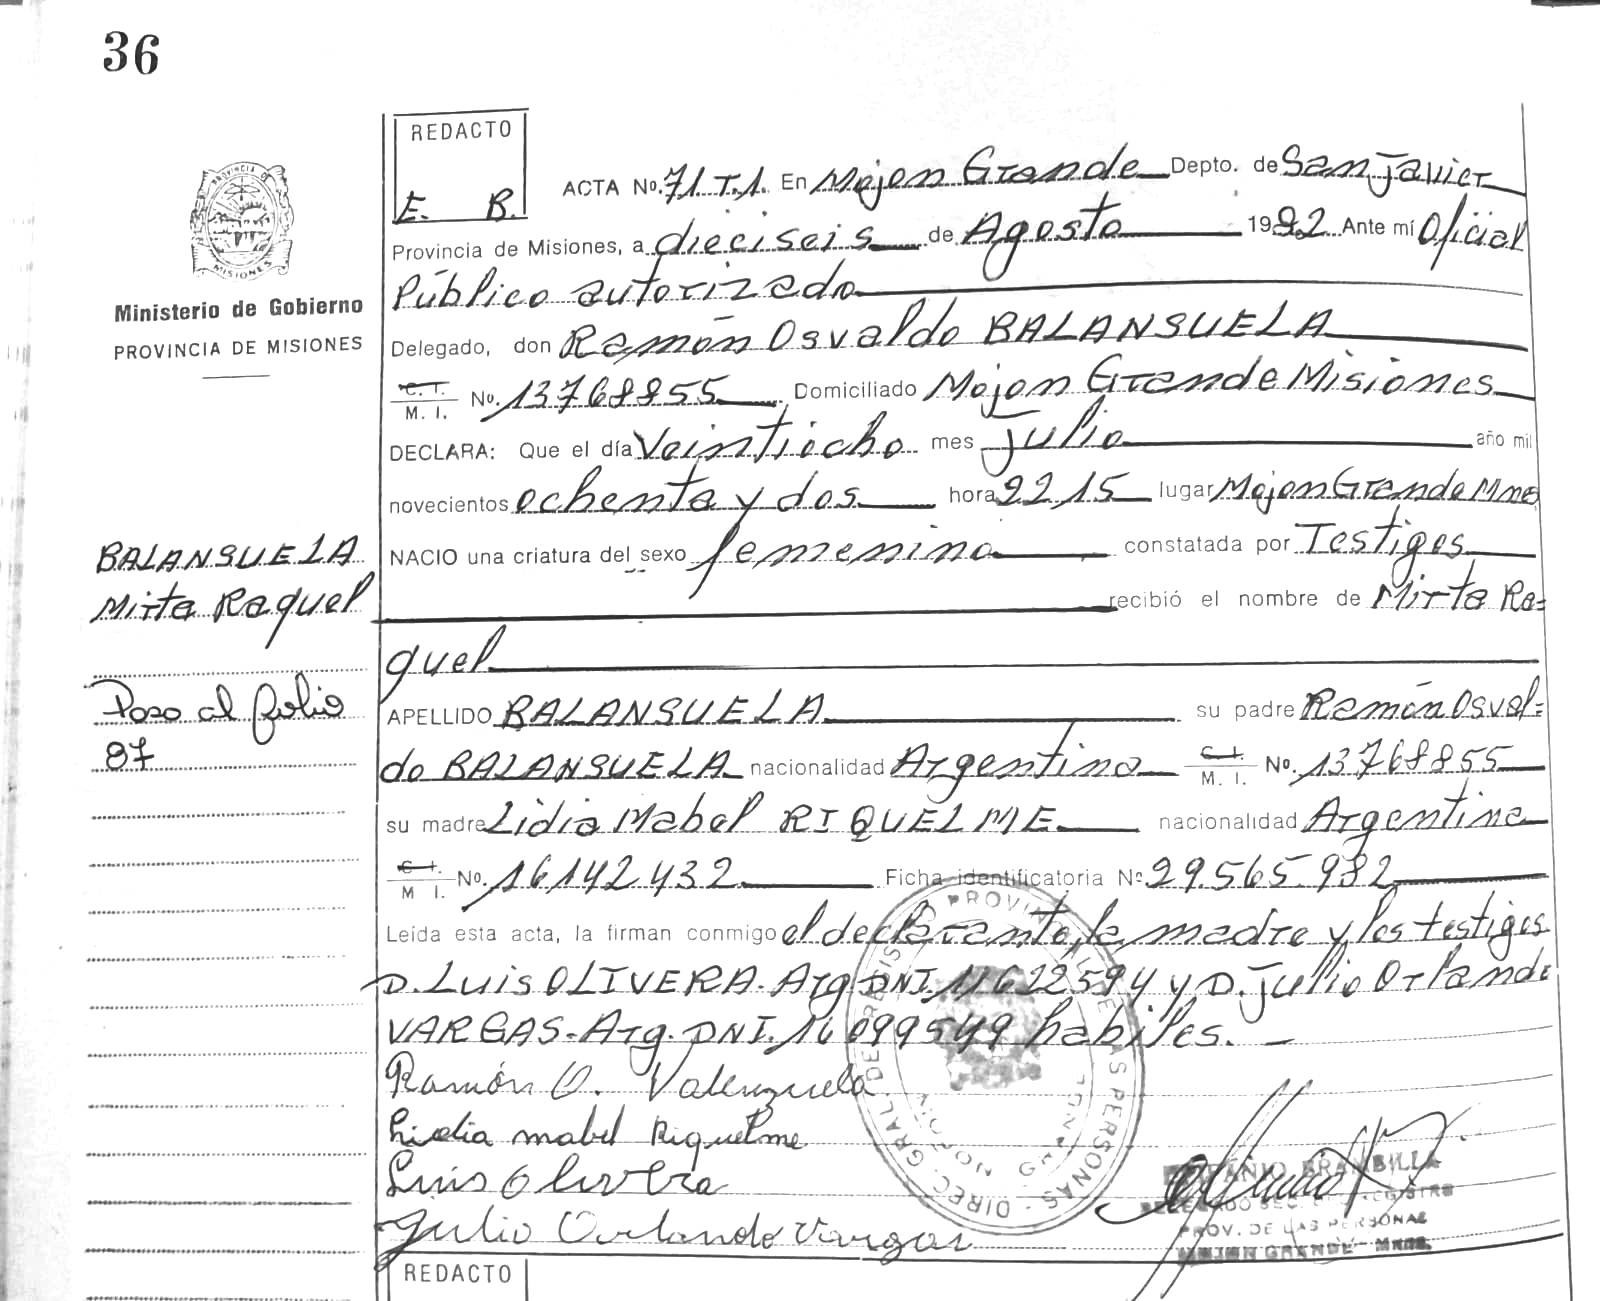 36
REDACTO
E. B.
PROVINCIA DE
MISIONES
Ministerio de Gobierno
PROVINCIA DE MISIONES
ACTA No. 71 T.1. En Mojon Grande Depto. de San Javier
Provincia de Misiones, a dieciseis de Agosto 1982 Ante mí Oficial
Público autorizado
Delegado, don Ramón Osvaldo BALANSUELA
C. I. M. I. No. 13768855 Domiciliado Mojon Grande Misiones
DECLARA: Que el día Veintiocho mes Julio año mil
novecientos ochenta y dos hora 22 15 lugar Mojon Grande Mnes
NACIO una criatura del sexo femenino constatada por Testigos
recibió el nombre de Mirta Ra=
quel
APELLIDO BALANSUELA su padre Ramón Osval=
do BALANSUELA nacionalidad Argentina C. I. M. I. No. 13768855
su madre Lidia Mabel RIQUELME nacionalidad Argentina
C. I. M. I. No. 16142432 Ficha identificatoria No 29.565.982
Leída esta acta, la firman conmigo el declarante, la madre y los testigos
D. Luis OLIVERA. Arg DNI. 11622594 y D. Julio Orlando
VARGAS-Arg. DNI. 16099549 habiles. —
BALANSUELA
Mirta Raquel
Paso al folio
87
Ramón O. Valenzuela
Lidia mabel Riquelme
Luis Olivera
Julio Orlando Vargas
DIREC. GRAL. DE REGISTRO PROVINCIAL DE LAS PERSONAS
MOJON GRANDE
BRAMBILLA
DELEGADO REGISTRO
PROV. DE LAS PERSONAS
MOJON GRANDE - MNES.
REDACTO